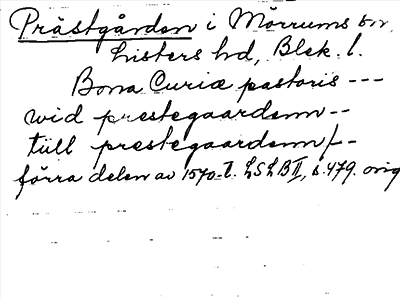 Prästgården i Mörrums sn,
Listers hd, Blek. l.
Bona Curiæ pastoris ---
wid prestegaardenn --
till prestegaardenn/--
förra delen av 1570-t. LSLB II, s. 479. orig